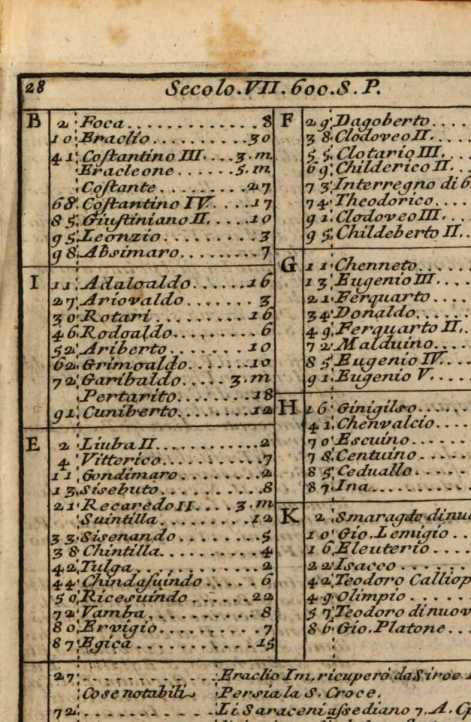 28 Secolo.VII.600.S.P.
B 2 Foca............8
10 Eraclio..........30
41 Costantino III....3.m
Eracleone.......5.m
Costante........27
68 Costantino IV.....17
85 Giustiniano II.....10
95 Leonzio..........3
98 Absimaro.........7
I 11 Adaloaldo.......16
27 Ariovaldo........3
30 Rotari..........16
46 Rodoaldo.........6
52 Ariberto.........10
62 Grimoaldo.......10
72 Garibaldo.....3.m
Pertarito.......18
91 Cuniberto........12
E 2 Liuba II..........2
4 Vitterico.........7
11 Gondimaro........2
13 Sisebuto..........8
21 Recaredo II.....3.m
Suintilla........12
33 Sisenando........5
38 Chintilla.........4
42 Tulga............2
44 Chindasuindo.....6
50 Ricesuindo......22
72 Vamba...........8
80 Ervigio...........7
87 Egica............15
F 29 Dagoberto....
38 Clodoveo II....
55 Clotario III....
69 Childerico II...
73 Interregno di 6
74 Theodorico....
91 Clodoveo III....
95 Childeberto II..
G 11 Chenneto.....
13 Eugenio III....
21 Ferquarto.....
34 Donaldo......
49 Ferquarto II..
72 Malduino.....
85 Eugenio IV....
91 Eugenio V.....
H 16 Ginigilso......
41 Chenvalcio....
70 Escuino......
78 Centuino.....
85 Ceduallo.....
87 Ina..........
K 2 Smaragdo di
10 Gio. Lemigio...
16 Eleuterio.....
22 Isacco.......
42 Teodoro Calliop
49 Olimpio......
57 Teodoro di nuov
86 Gio. Platone...
27..............Eraclio Im, ricuperò da Siroe
Cose notabili Persia la S. Croce.
72..............Li Saraceni assediano 7. A.